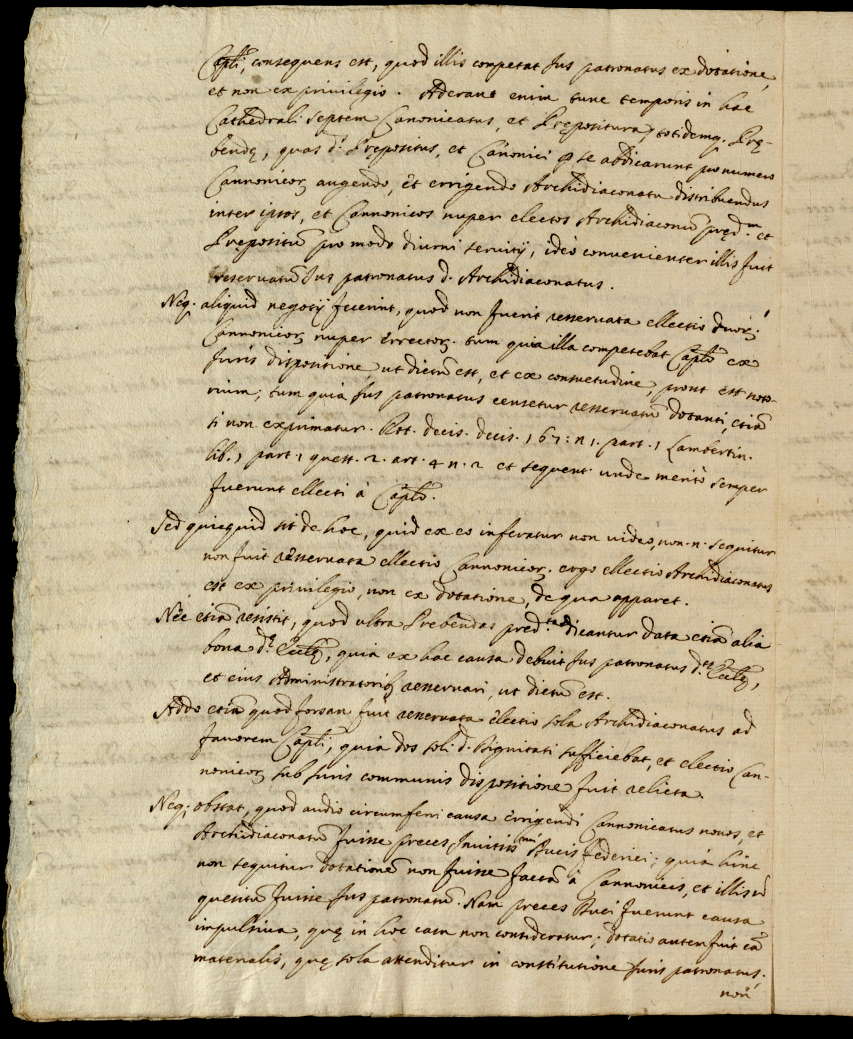 Capli, consequens est, quod illis competat Jus patronatus ex dotatione,
et non ex privilegio. Aderant enim tunc temporis in hac
Cathedrali septem Canonicatus, et Prępositura, totidemq. Prę-
bendę, quas d. Prępositus, et Canonici p se abdicarunt pro numero
Cannonicor. augendo, et errigendo Archidiaconatu distribuendas
inter ipsos, et Cannonicos nuper electos Archidiaconũ pręd.m et
Prepositũ pro modo diurni servitij, ideo convenienter illis fuit
reservatũ Jus patronatus d. Archidiaconatus.
Neq. aliquid negotij fecerint, quod non fuerit resservata ellectio duor.
Cannonicor. nuper errector. tum quia illa competebat Caplo ex
Juris dispositione ut dictũ est, et ex consuetudine, prout est noto-
rium; tum quia Jus patronatus censetur resservatũ dotanti, etiã
si non exprimatur. Rot. decis. decis. 167: n 1. part. 1 Lambertin.
lib. 1 part. 1 quest. 2. art. 4 n. 2 et sequent. unde meritò semper
fuerunt ellecti à Caplo.
Sed quicquid sit de hoc, quid ex eo inferatur non video, non. n. sequitur
non fuit resservata ellectio Cannonicor. ergo ellectio Archidiaconatus
est ex privilegio, non ex dotatione, de qua apparet.
Nec etiã resistit, quod ultra Prebendas pred.tas dicantur data etiã alia
bona d. Eccle, quia ex hac causa debuit Jus patronatus d. Eccle,
et eius Administratorib resservari, ut dictũ est.
Addo etiã quod forsan fuit resservata electio sola Archidiaconatus ad
favorem Capli, quia dos soli d. Dignitati sufficiebat, et electio Can-
nonicor. sub Juris communis dispositione fuit relicta.
Neq; obstat, quod audio circumferri causa errigendi Cannonicatus novos, et
Archidiaconatũ fuisse preces Ducis Federici; quia hinc
non sequitur dotationẽ non fuisse factã à Cannonicis, et illis
quesitũ fuisse Jus patronatũ. Nam preces Duci fuerunt causa
impulsiva, quę in hoc casu non consideratur; dotatio autem fuit cã
materialis, quę sola attenditur in constitutione Juris patronatus,
non